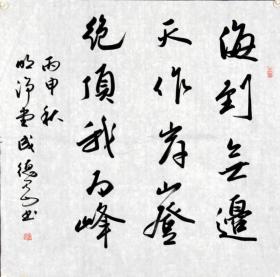 海到无邊
天作岸山登
绝頂我为峰
丙申秋
明净堂成德
书